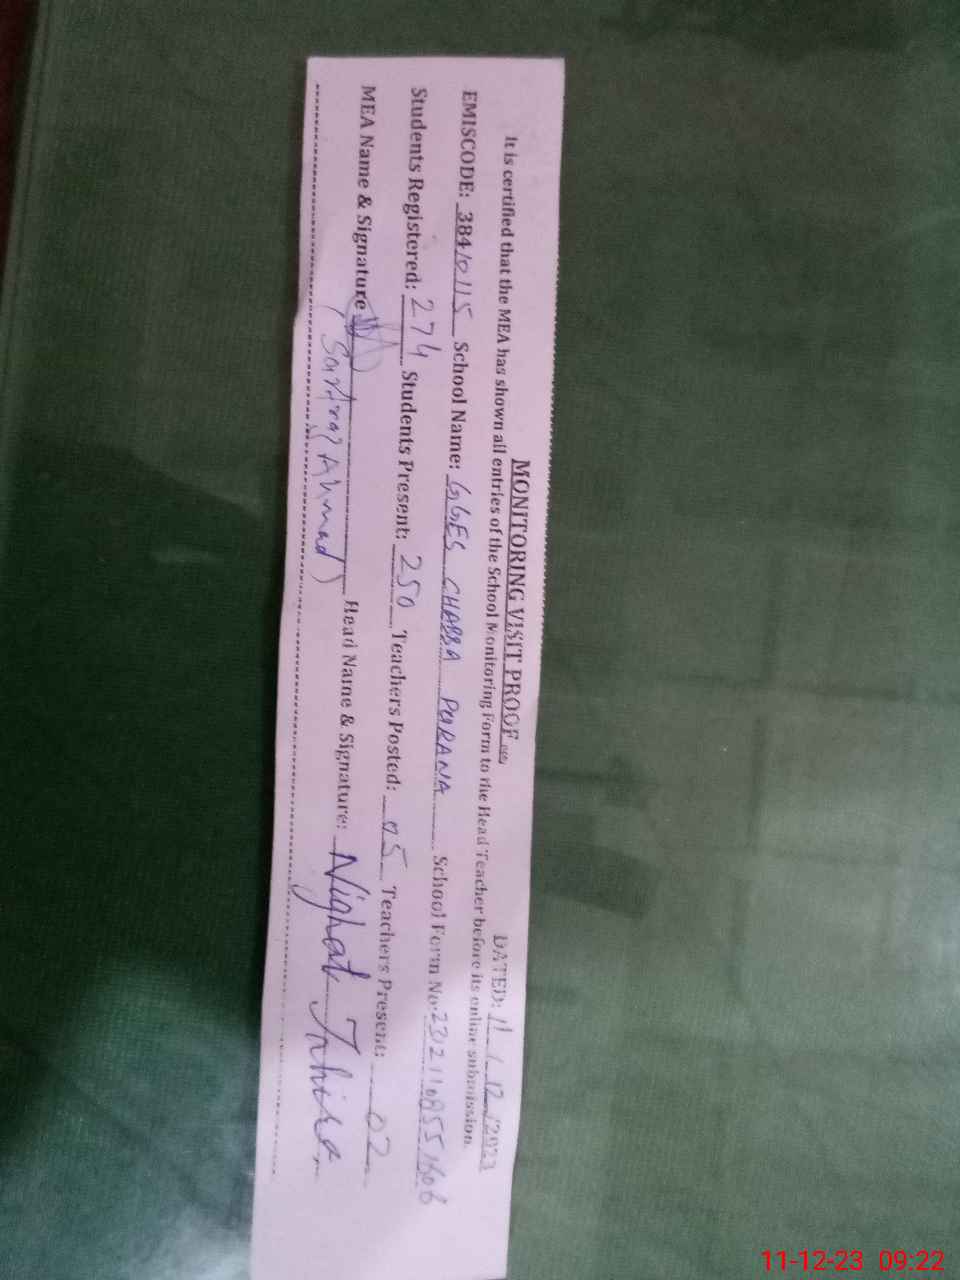 MONITORING VISIT PROOF
DATED: 11 / 12 /2023
It is certified that the MEA has shown all entries of the School Monitoring Form to the Head Teacher before its online submission.
EMISCODE: 38410115 School Name: GGES CHABBA PURANA School Form No:
Students Registered: 274 Students Present: 250 Teachers Posted: 05 Teachers Present: 02
MEA Name & Signature Head Name & Signature: Nighat Tahira
Ahmad)
11-12-23 09:22